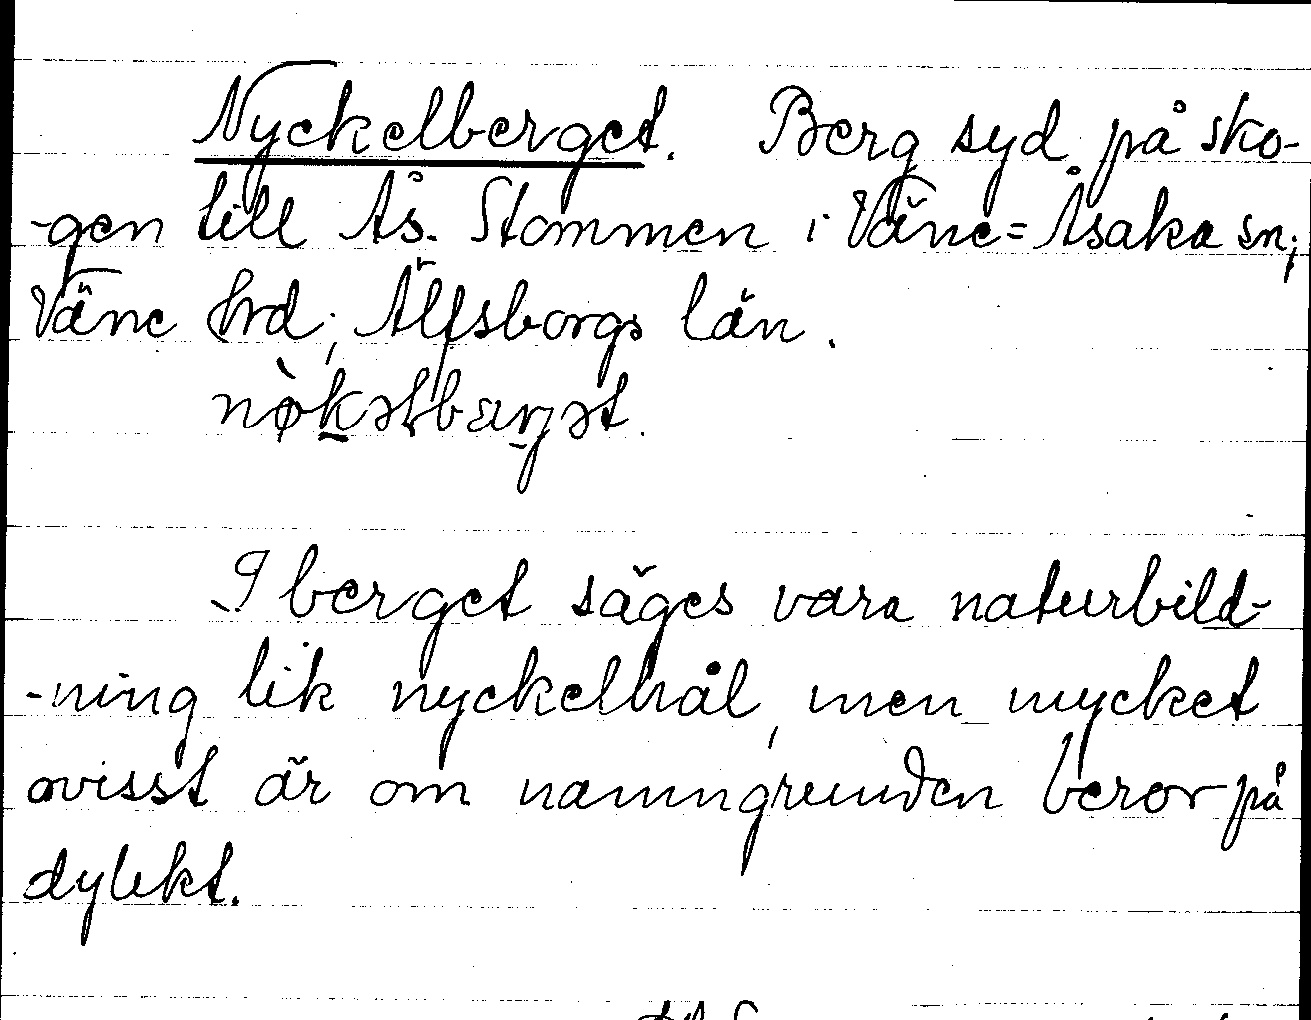 Nyckelberget. Berg syd på sko-
-gen till Ås. Stommen i Väne=Åsaka sn;
Väne hrd; Älfsborgs län.
I berget säges vara naturbild-
-ning lik nyckelhål, men mycket
ovisst är om namngrunden beror på
dylikt.